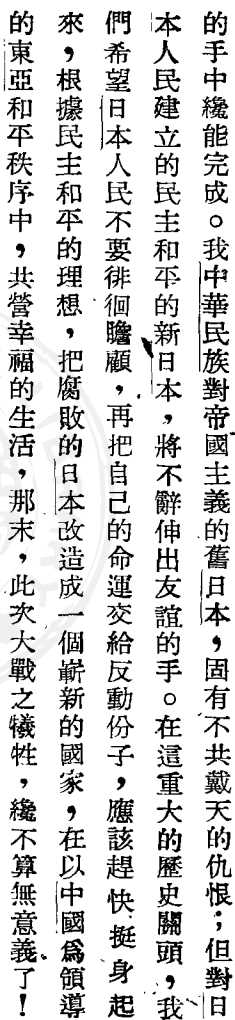 的手中纔能完成。我中華民族對帝國主義的舊日本，固有不共戴天的仇恨；但對日
本人民建立的民主和平的新日本，將不辭伸出友誼的手。在這重大的歷史關頭，我
們希望日本人民不要徘徊瞻顧，再把自己的命運交給反動份子，應該趕快挺身起
來，根據民主和平的理想，把腐敗的日本改造成一個嶄新的國家，在以中國爲領導
的東亞和平秩序中，共營幸福的生活，那末，此次大戰之犧牲，纔不算無意義了！